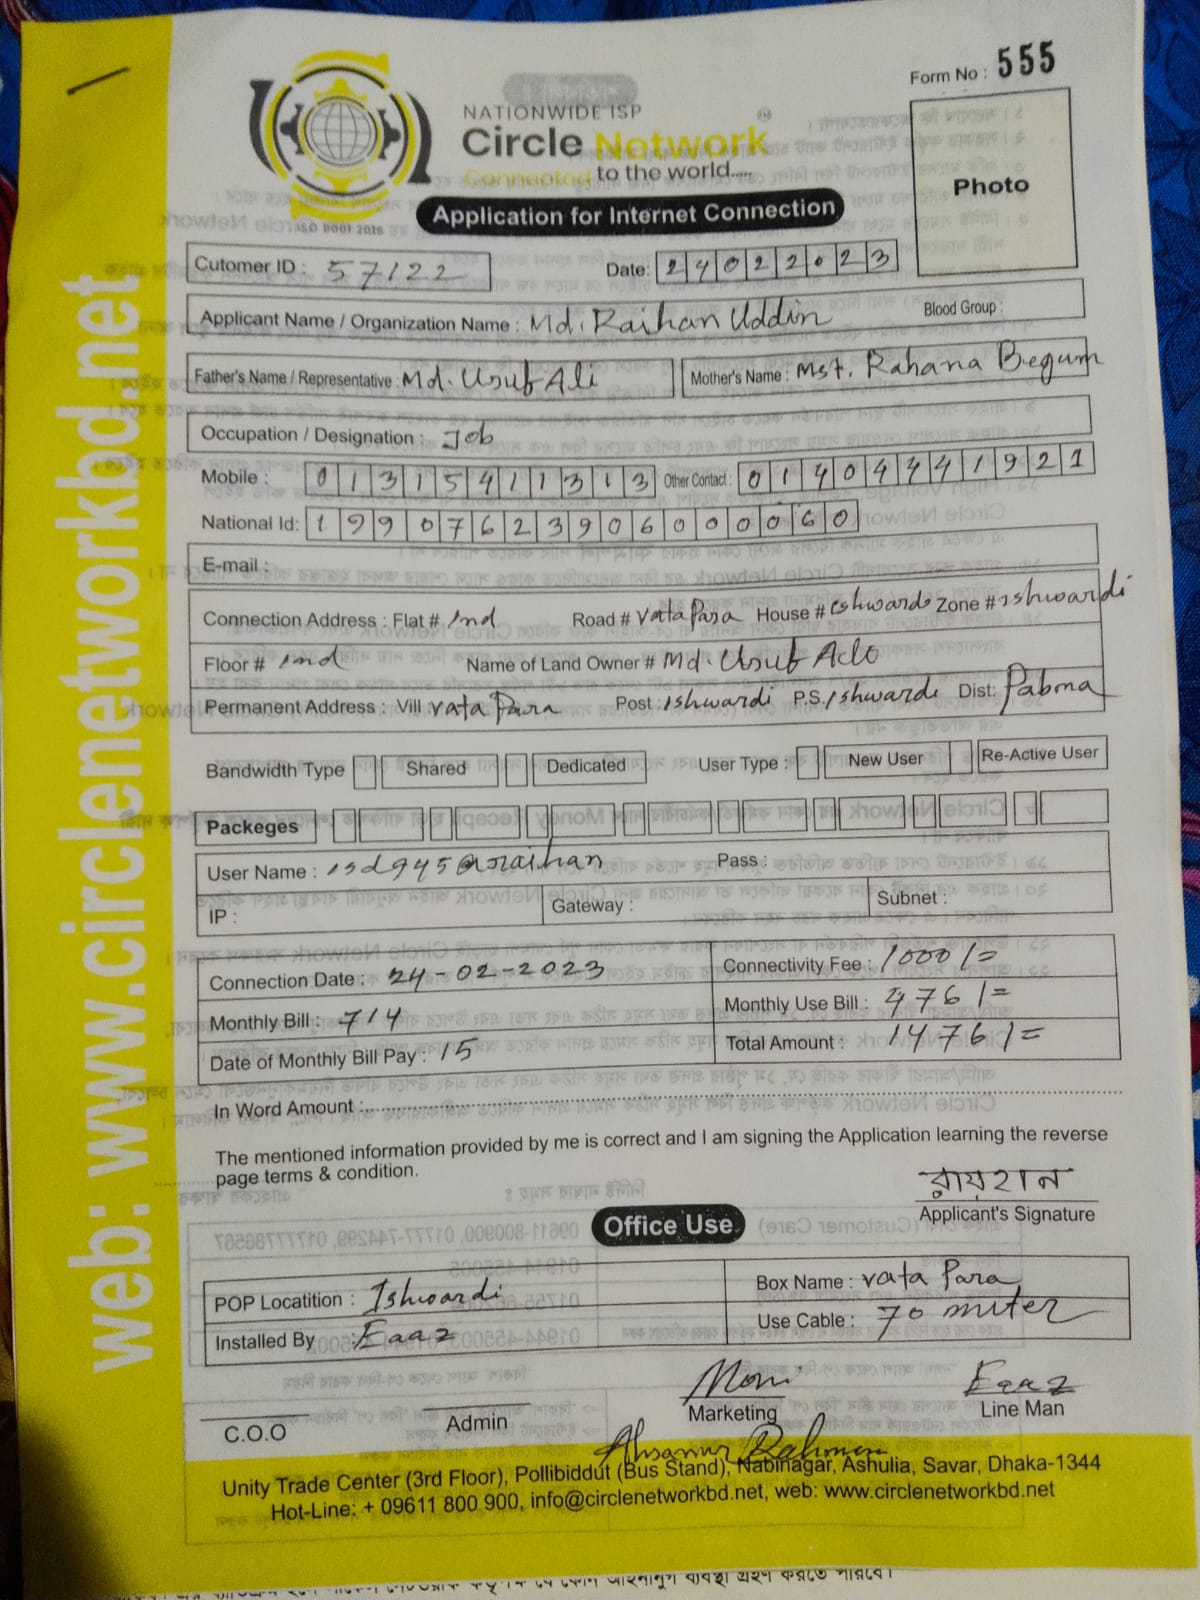 Form No : 555
NATIONWIDE ISP
Circle Network
Connected to the world.....
Photo
Application for Internet Connection
ISO 9001 2015
Cutomer ID : 57122 Date: 24022023
Applicant Name / Organization Name : Md. Raihan Uddin Blood Group :
Father's Name / Representative : Md. Usuf Ali Mother's Name : Mst. Rahana Begum
Occupation / Designation : Job
Mobile : 01315411313 Other Contact : 01404441921
National Id: 19907623906000060
E-mail :
Connection Address : Flat # Road # vata Para House # Zone # ishwardi
Floor # Name of Land Owner # Md. Usuf
Permanent Address : Vill vata Para Post : ishwardi P.S. ishwardi Dist: Pabna
Bandwidth Type Shared Dedicated User Type : New User Re-Active User
Packeges
User Name : Pass :
IP : Gateway : Subnet :
Connection Date : 24-02-2023 Connectivity Fee : 1000/=
Monthly Bill : 714 Monthly Use Bill : 476/=
Date of Monthly Bill Pay : 15 Total Amount : 1476/=
In Word Amount :
The mentioned information provided by me is correct and I am signing the Application learning the reverse
page terms & condition.
রায়হান
Applicant's Signature
Office Use
POP Locatition : Ishwardi Box Name : vata Para
Installed By : Eaaz Use Cable : 70 miter
Moni Eaaz
C.O.O Admin Marketing Line Man
Ahsanur Rahman
Unity Trade Center (3rd Floor), Pollibiddut (Bus Stand), Nabinagar, Ashulia, Savar, Dhaka-1344
Hot-Line: + 09611 800 900, info@circlenetworkbd.net, web: www.circlenetworkbd.net
web: www.circlenetworkbd.net